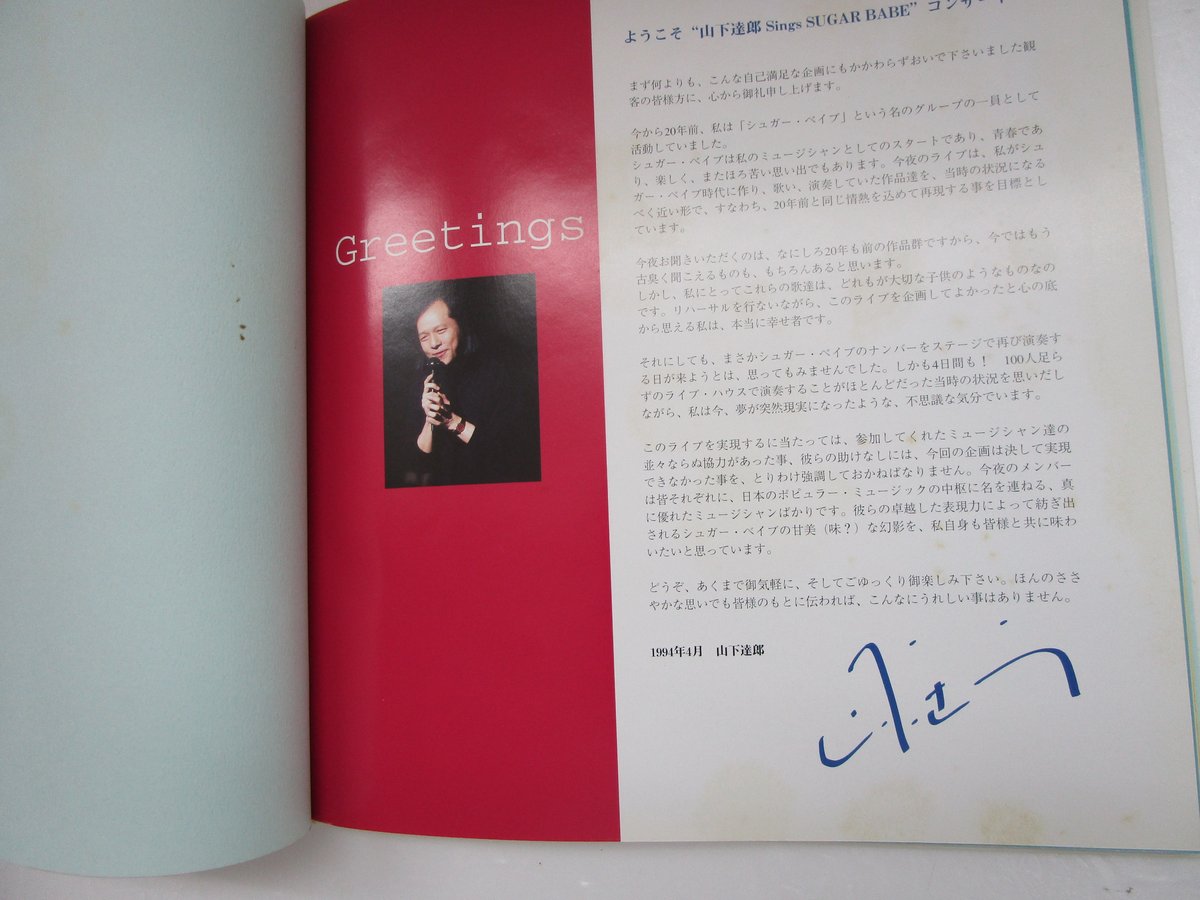 Greetings
ようこそ“山下達郎 Sings SUGAR BABE”コンサート
まず何よりも、こんな自己満足な企画にもかかわらずおいで下さいました観
客の皆様方に、心から御礼申し上げます。
今から20年前、私は「シュガー・ベイブ」という名のグループの一員として
活動していました。
シュガー・ベイブは私のミュージシャンとしてのスタートであり、青春であ
り、楽しく、またほろ苦い思い出でもあります。今夜のライブは、私がシュ
ガー・ベイブ時代に作り、歌い、演奏していた作品達を、当時の状況になる
べく近い形で、すなわち、20年前と同じ情熱を込めて再現する事を目標とし
ています。
今夜お聞きいただくのは、なにしろ20年も前の作品群ですから、今ではもう
古臭く聞こえるものも、もちろんあると思います。
しかし、私にとってこれらの歌達は、どれもが大切な子供のようなものなの
です。リハーサルを行ないながら、このライブを企画してよかったと心の底
から思える私は、本当に幸せ者です。
それにしても、まさかシュガー・ベイブのナンバーをステージで再び演奏す
る日が来ようとは、思ってもみませんでした。しかも4日間も！　100人足ら
ずのライブ・ハウスで演奏することがほとんどだった当時の状況を思いだし
ながら、私は今、夢が突然現実になったような、不思議な気分でいます。
このライブを実現するに当たっては、参加してくれたミュージシャン達の
並々ならぬ協力があった事、彼らの助けなしには、今回の企画は決して実現
できなかった事を、とりわけ強調しておかねばなりません。今夜のメンバー
は皆それぞれに、日本のポピュラー・ミュージックの中枢に名を連ねる、真
に優れたミュージシャンばかりです。彼らの卓越した表現力によって紡ぎ出
されるシュガー・ベイブの甘美（味？）な幻影を、私自身も皆様と共に味わ
いたいと思っています。
どうぞ、あくまで御気軽に、そしてごゆっくり御楽しみ下さい。ほんのささ
やかな思いでも皆様のもとに伝われば、こんなにうれしい事はありません。
1994年4月　山下達郎